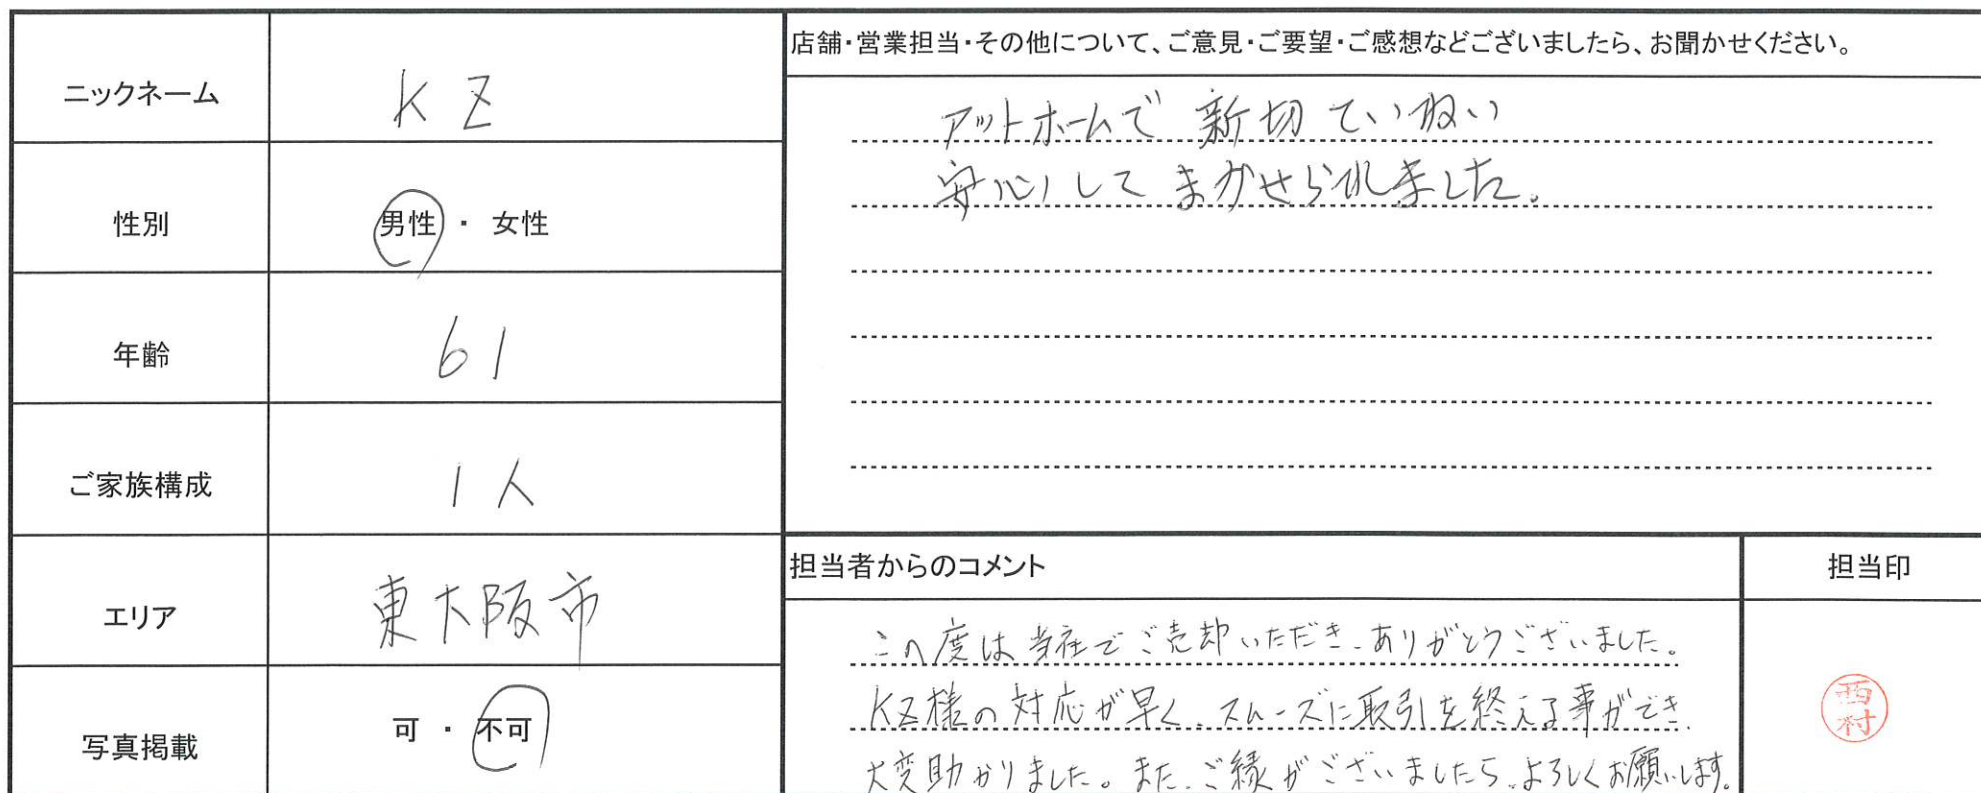 ニックネーム
KZ
性別
男性 ・ 女性
年齢
61
ご家族構成
1人
エリア
東大阪市
写真掲載
可 ・ 不可
店舗・営業担当・その他について、ご意見・ご要望・ご感想などございましたら、お聞かせください。
アットホームで 新切 ていねい
安心して まかせられました。
担当者からのコメント
この度は当社でご売却いただき、ありがとうございました。
KZ様の対応が早く、スムーズに取引を終える事ができ、
大変助かりました。また、ご縁がございましたら、よろしくお願いします。
担当印
西村